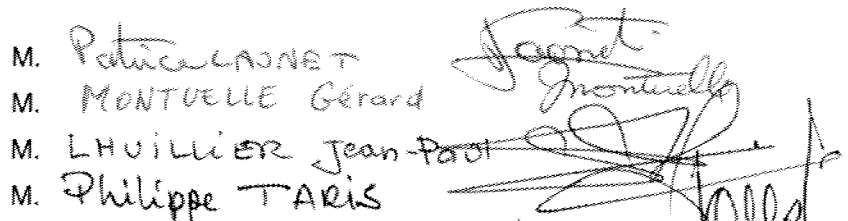 M. Patrice LAUNET
M. MONTUELLE Gérard montuelle
M. LHUILLIER Jean-Paul
M. Philippe TARIS